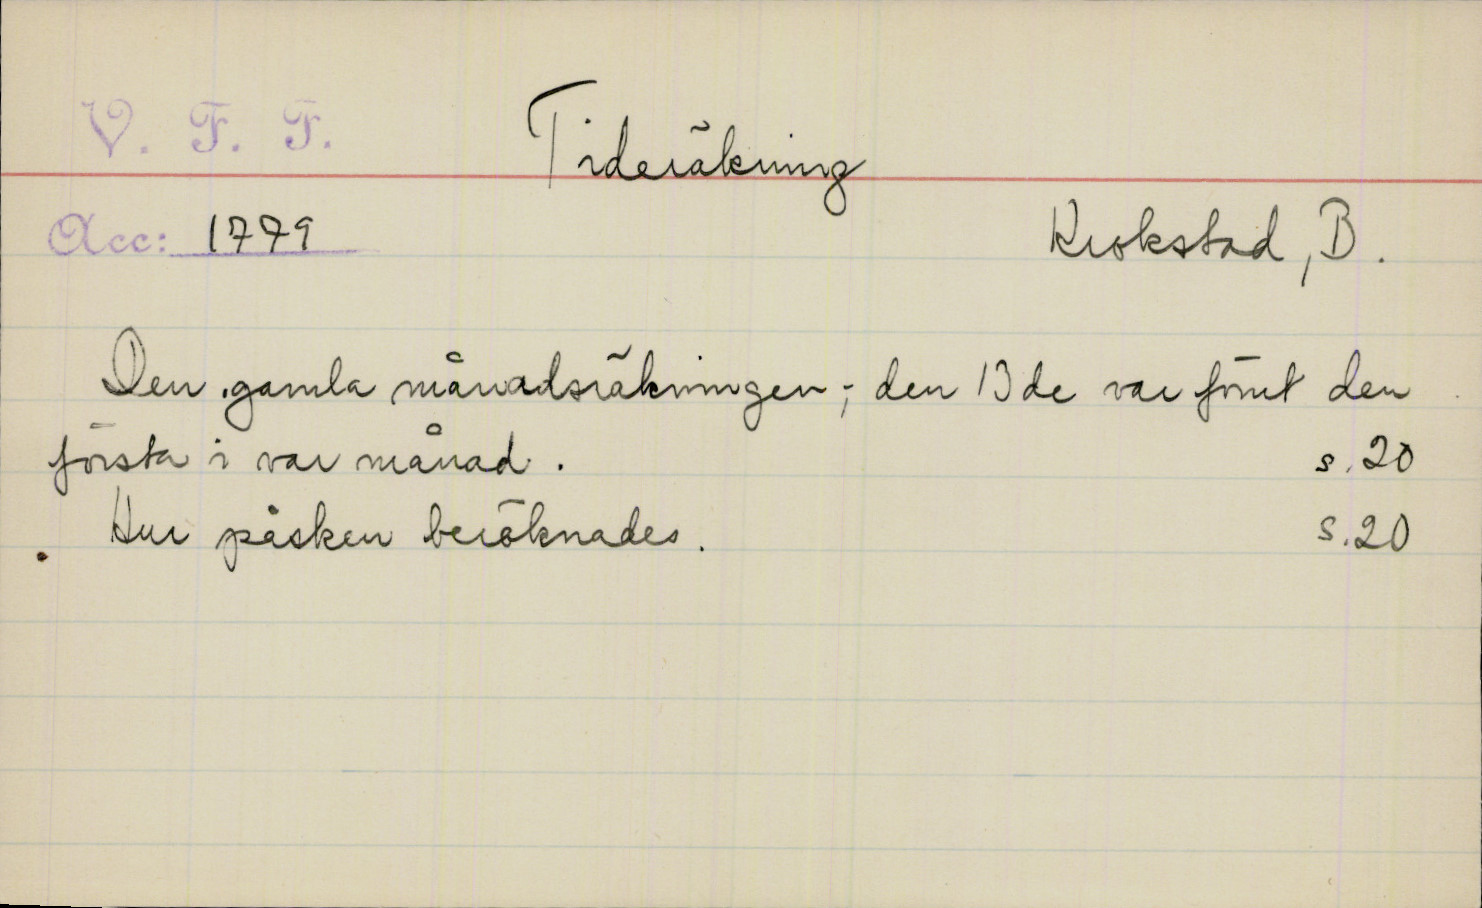 V. F. F.
Tideräkning
Acc: 1779
Krokstad, B.
Den gamla månadsräkningen; den 13de var förut den
första i var månad. s. 20
Hur påsken beräknades. s. 20